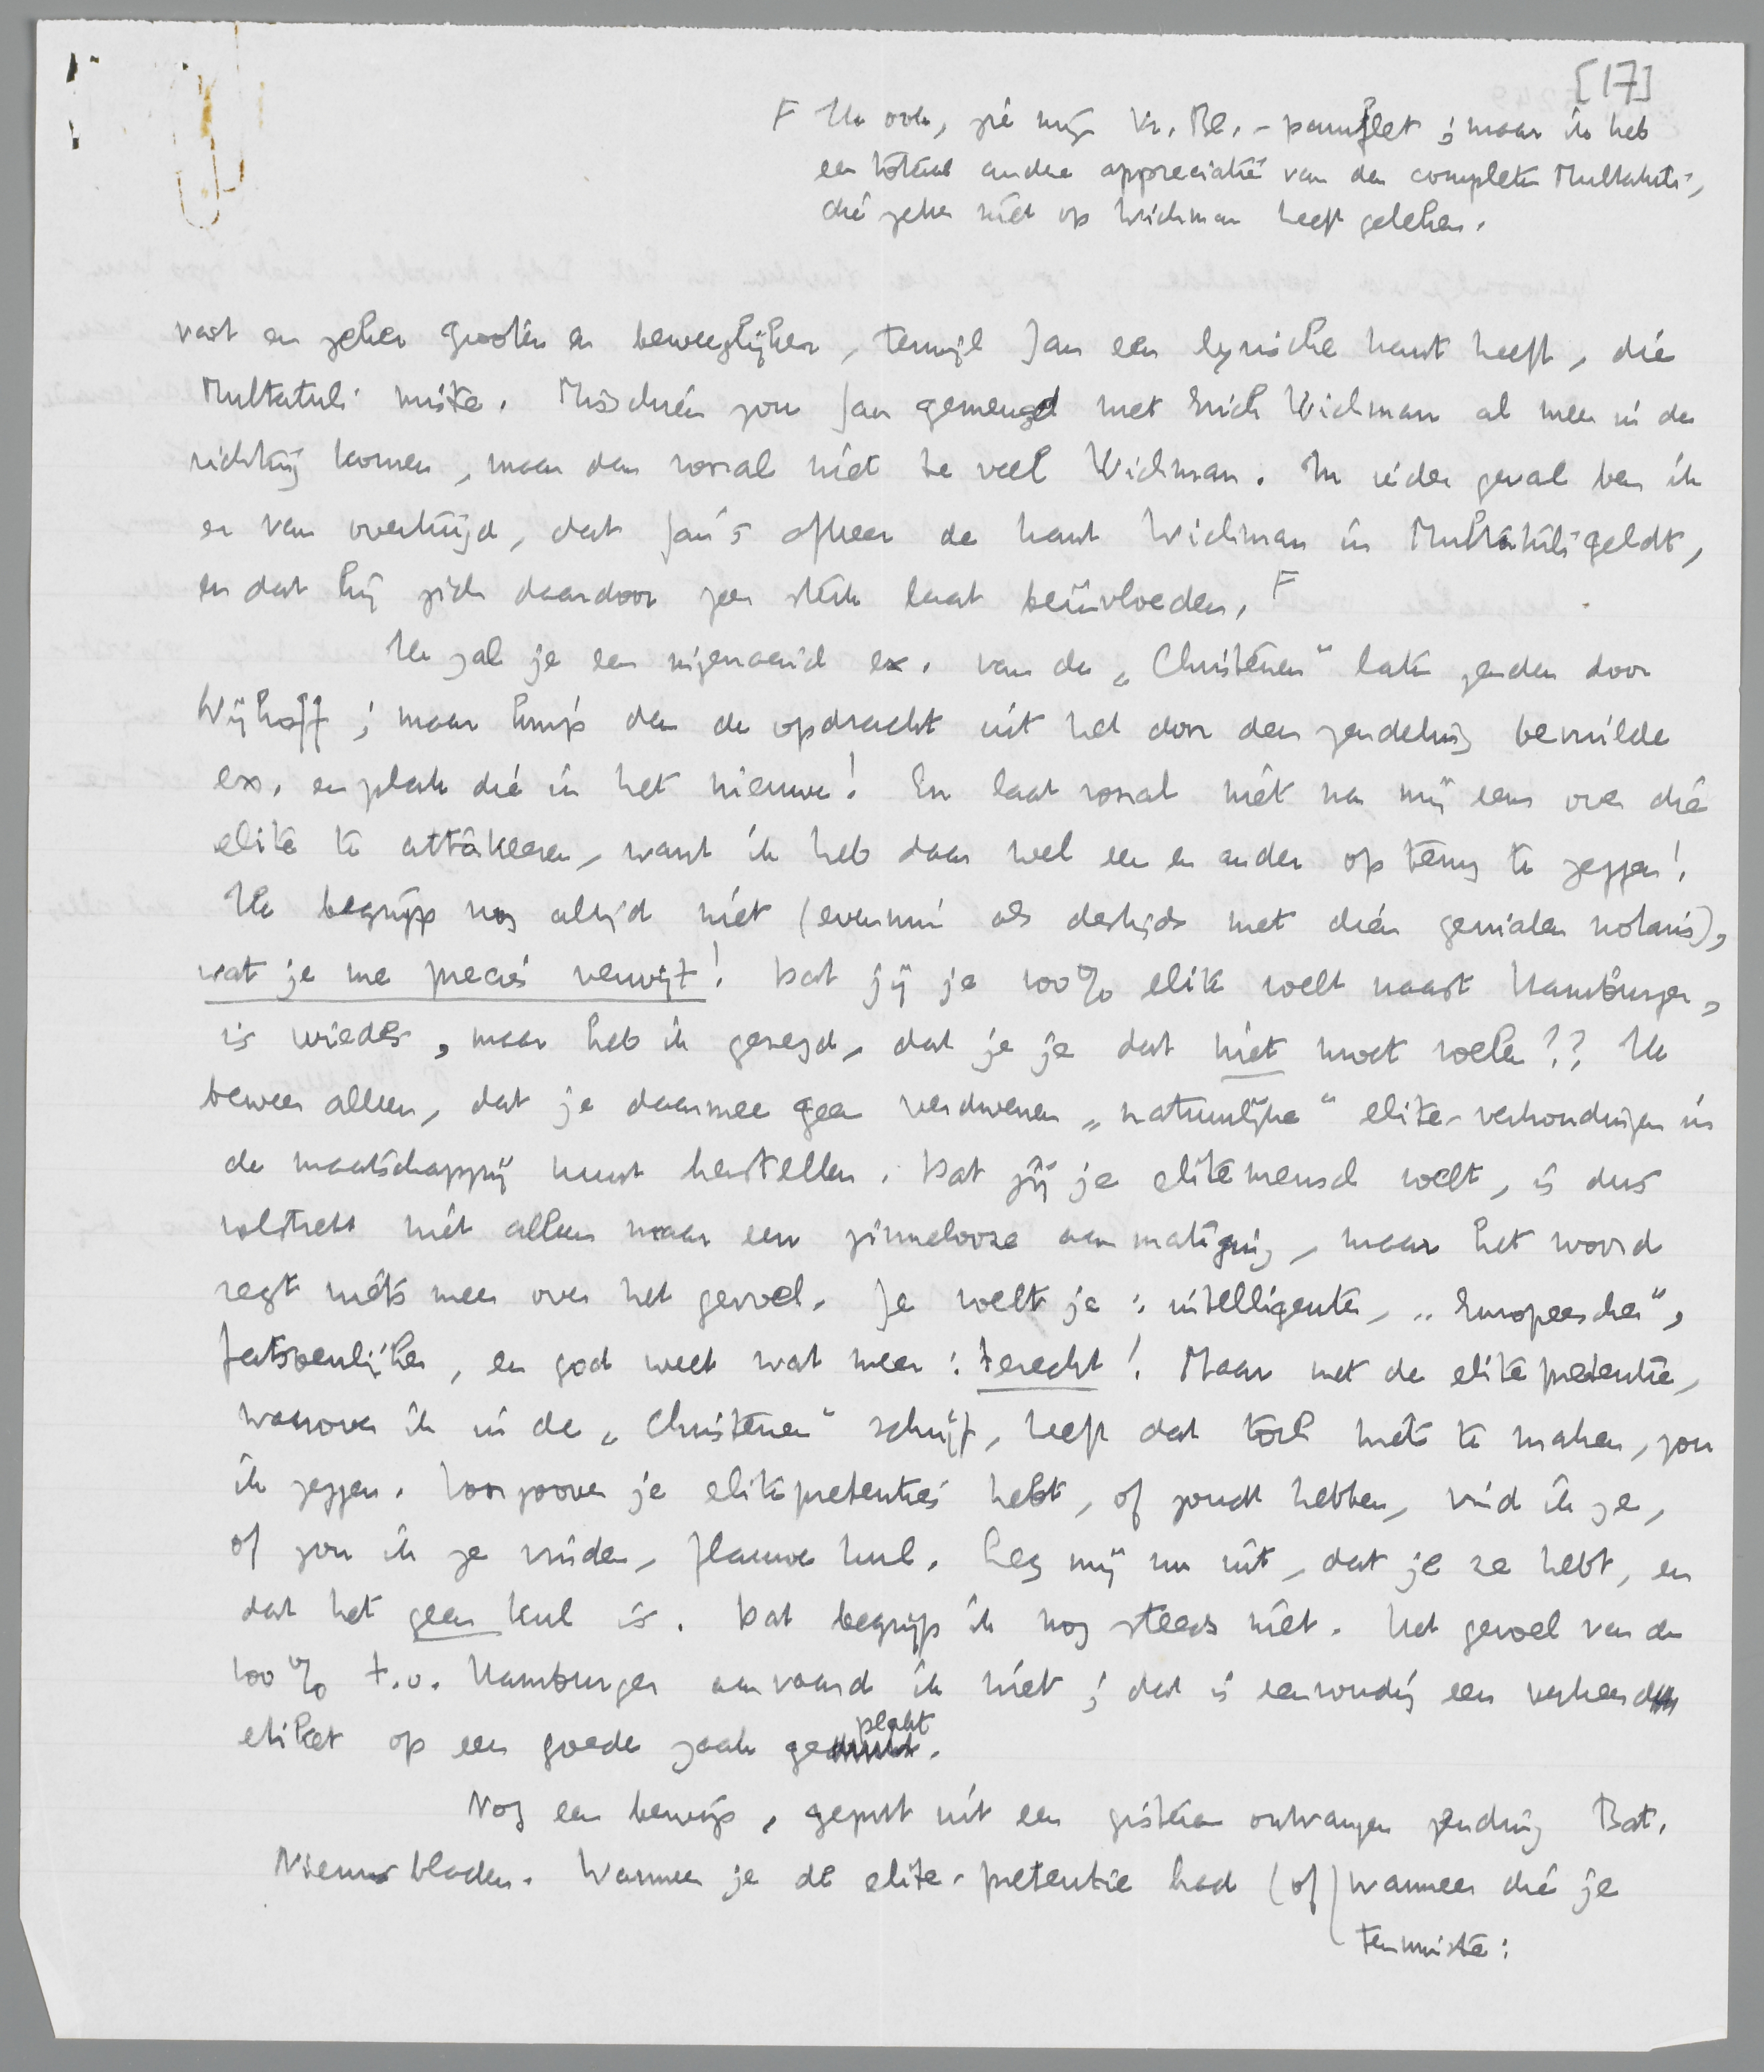 [17]
F Ik ook, zie mijn Vr. Bl.-pamflet; maar ik heb
een totaal andere appreciatie van den completen Multatuli,
die zeker niet op Wichman heeft geleken.
vast en zeker grooter en beweeglijker, terwijl Jan een lyrische kant heeft, die
Multatuli miste. Misschien zou Jan gemengd met Erich Wichman al meer in de
richting komen, maar dan vooral niet te veel Wichman. In ieder geval ben ik
er van overtuigd, dat Jan's afkeer de kant Wichman in Multatuli geldt,
en dat hij zich daardoor zeer sterk laat beïnvloeden. F
Ik zal je een ingenaaid ex. van de „Christenen" laten zenden door
Nijhoff; maar knip dan de opdracht uit het door den zendeling bevuilde
ex. en plak die in het nieuwe! En laat vooral niet na mij eens over die
elite te attakeeren, want ik heb daar wel een en ander op terug te zeggen!
Ik begrijp nog altijd niet (evenmin als destijds met dien genialen notaris),
wat je me precies verwijt! Dat jij je 100% elite voelt naast Hamburger,
is wiedes, maar heb ik gezegd, dat je je dat niet moet voelen?? Ik
beweer alleen, dat je daarmee geen verdwenen „natuurlijke" elite-verhoudingen in
de maatschappij kunt herstellen. Dat jij je elitemensch voelt, is dus
volstrekt niet alleen maar een zinnelooze aanmatiging, maar het woord
zegt niets meer over het gevoel. Je voelt je: intelligenter, „Europeescher",
fatsoenlijker, en god weet wat meer: terecht! Maar met de elitepretentie,
waarover ik in de „Christenen" schrijf, heeft dat toch niets te maken, zou
ik zeggen. Voorzoover je elitepretenties hebt, of zoudt hebben, vind ik ze,
of zou ik ze vinden, flauwe kul. Leg mij nu uit, dat je ze hebt, en
dat het geen kul is. Dat begrijp ik nog steeds niet. Het gevoel van de
100% t.o. Hamburger aanvaard ik niet; dat is eenvoudig een verkeerd
etiket op een goede zaak geplakt.
Nog een bewijs, geput uit een gisteren ontvangen zending Bat.
Nieuwsbladen. Wanneer je de elite-pretentie had (of) wanneer die je
tenminste: